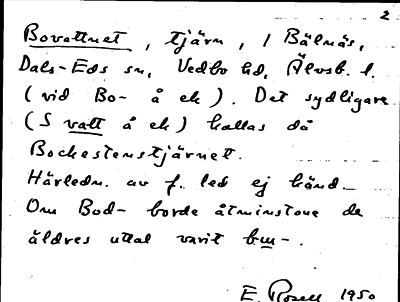 2
Bovattnet, tjärn, i Bälnäs,
Dals-Eds sn, Vedbo hd, Älvsb. l.
(vid Bo- å ek). Det sydligare
(S vatt å ek) kallas då
Bockestenstjärnet.
Härledn. av f. led ej känd.
Om Bod- borde åtminstone de
äldres uttal varit bω-.
E. Rosell 1950